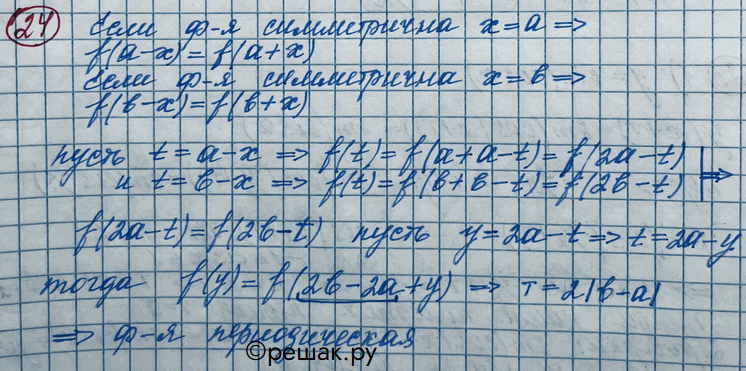 24 Если ф-я симметрична x=a ⇒
f(a-x)=f(a+x)
Если ф-я симметрична x=в ⇒
f(в-x)=f(в+x)
пусть t=a-x ⇒ f(t)=f(a+a-t)=f(2a-t)
и t=в-x ⇒ f(t)=f(в+в-t)=f(2в-t) | ⇒
f(2a-t)=f(2в-t) пусть y=2a-t ⇒ t=2a-y
тогда f(y)=f(2в-2a+y) ⇒ T=2|в-a|
⇒ ф-я периодическая
©решак.ру